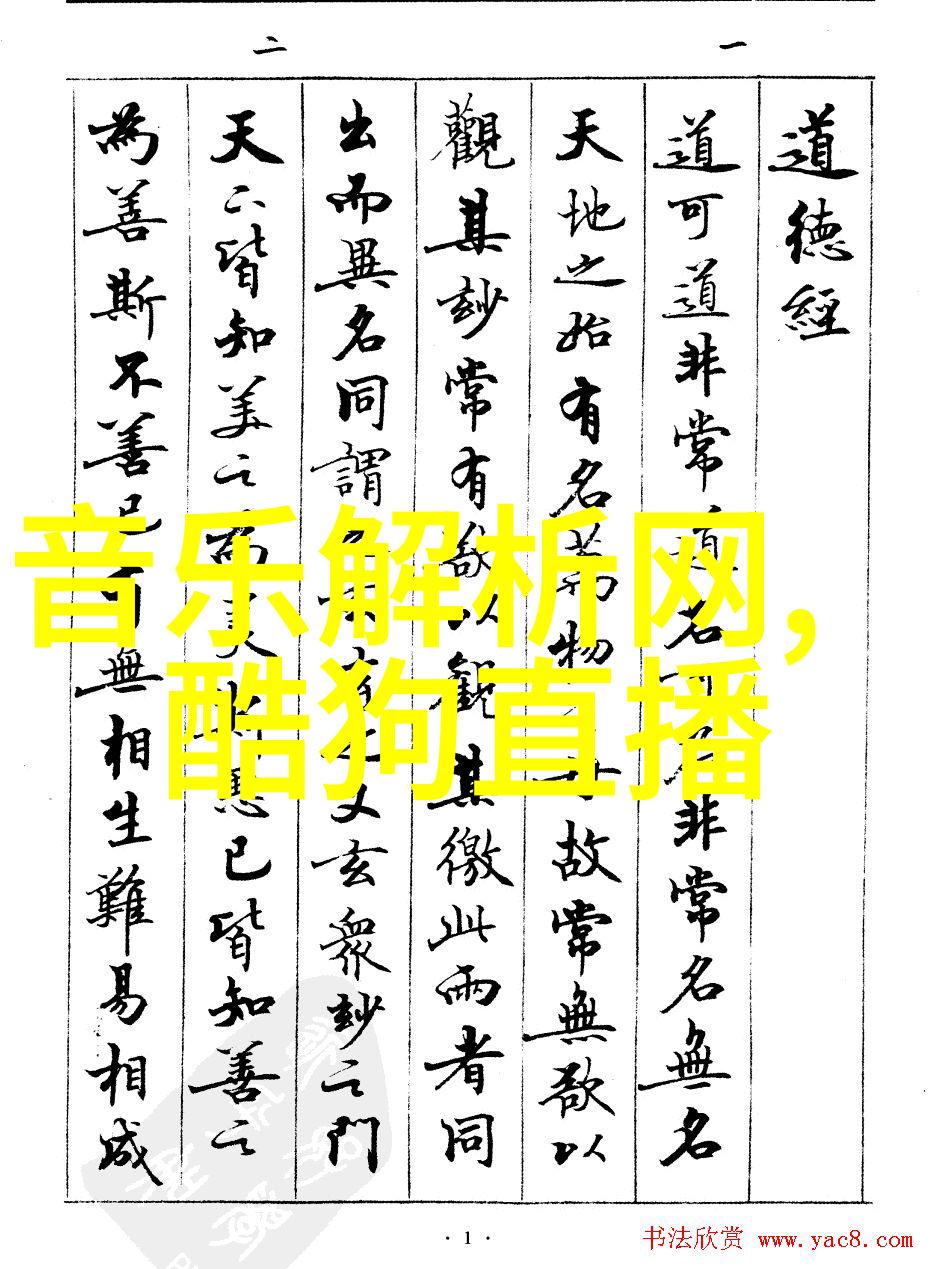 一
道德經
道可道非常道名可名非常名無名
天地之始有名萬物母故常無欲以
觀其玅常有欲以觀其徼此兩者同
出而異名同謂之又玄眾玅之門
二
天下皆知美之為美斯惡已皆知善之
為善斯不善已有無相生難易相成
音乐解析网,
酷狗直播
· 1 ·
书法欣赏 www.yac8.com